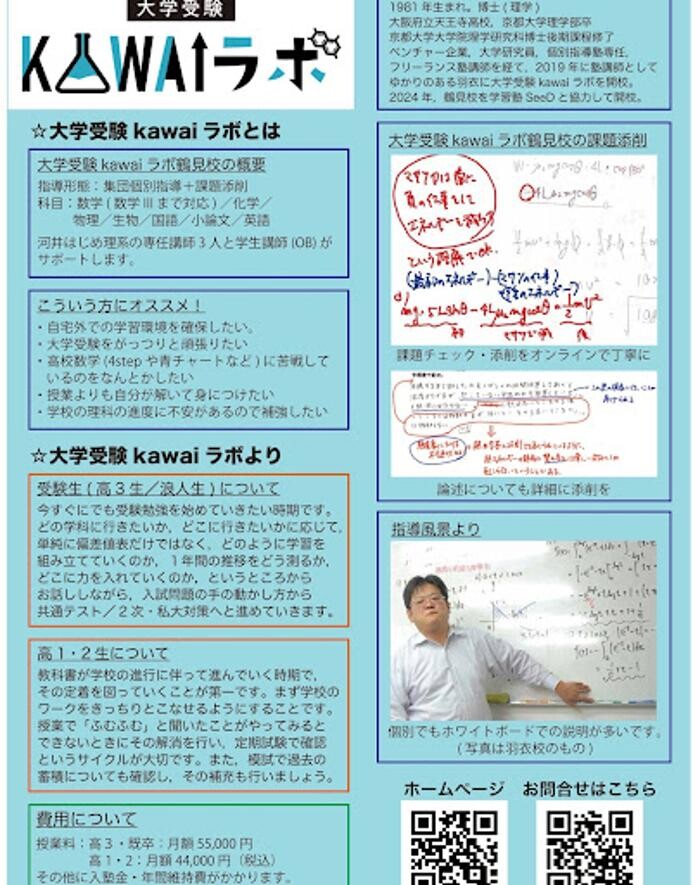 大学受験
KAWAIラボ
☆大学受験 kawai ラボとは
大学受験 kawai ラボ鶴見校の概要
指導形態：集団個別指導＋課題添削
科目：数学 ( 数学 III まで対応 ) ／化学／
物理／生物／国語／小論文／英語
河井はじめ理系の専任講師 3 人と学生講師 (OB) が
サポートします。
こういう方にオススメ！
・自宅外での学習環境を確保したい。
・大学受験をがっつりと頑張りたい
・高校数学 (4step や青チャートなど ) に苦戦して
いるのをなんとかしたい
・授業よりも自分が解いて身につけたい
・学校の理科の進度に不安があるので補強したい
☆大学受験 kawai ラボより
受験生 ( 高 3 生／浪人生 ) について
今すぐにでも受験勉強を始めていきたい時期です。
どの学科に行きたいか，どこに行きたいかに応じて，
単純に偏差値表だけではなく，どのように学習を
組み立てていくのか，1 年間の推移をどう測るか，
どこに力を入れていくのか，というところから
お話ししながら，入試問題の手の動かし方から
共通テスト／2 次・私大対策へと進めていきます。
高 1・2 生について
教科書が学校の進行に伴って進んでいく時期で，
その定着を図っていくことが第一です。まず学校の
ワークをきっちりとこなせるようにすることです。
授業で「ふむふむ」と聞いたことがやってみると
できないときにその解消を行い，定期試験で確認
というサイクルが大切です。また，模試で過去の
蓄積についても確認し，その補充も行いましょう。
費用について
授業料：高 3・既卒：月額 55,000 円
高 1・2：月額 44,000 円（税込）
その他に入塾金・年間維持費がかかります。
1981 年生まれ。博士 ( 理学 )
大阪府立天王寺高校，京都大学理学部卒
京都大学大学院理学研究科博士後期課程修了
ベンチャー企業，大学研究員，個別指導塾専任，
フリーランス塾講師を経て，2019 年に塾講師として
ゆかりのある羽衣に大学受験 kawai ラボを開校。
2024 年，鶴見校を学習塾 SeeD と協力して開校。
大学受験 kawai ラボ鶴見校の課題添削
マサツ力は常に
負の仕事をして
エネルギーを
という認識でOK.
課題チェック・添削をオンラインで丁寧に
論述についても詳細に添削を
指導風景より
個別でもホワイトボードでの説明が多いです。
( 写真は羽衣校のもの )
ホームページ
お問合せはこちら